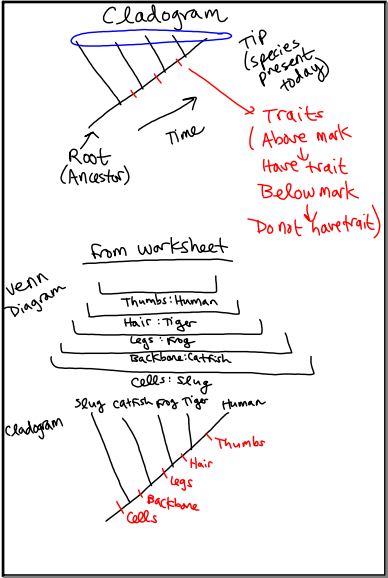 Cladogram
Tip
(species
present
today)
Time
Root
(Ancestor)
Traits
(Above mark
Have trait
Below mark
Do not have trait)
from worksheet
Venn
Diagram
Thumbs: Human
Hair: Tiger
Legs: Frog
Backbone: Catfish
Cells: Slug
Cladogram
Slug Catfish Frog Tiger Human
Thumbs
Hair
Legs
Backbone
Cells